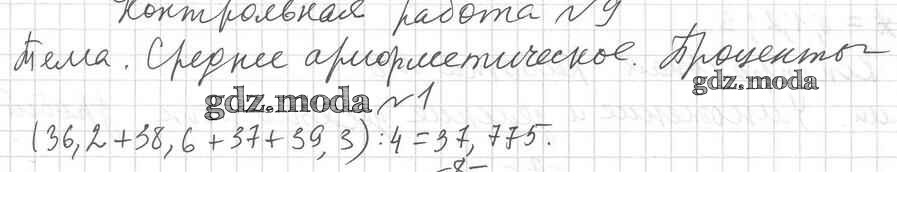 Контрольная работа №9
Тема. Среднее арифметическое. Проценты
gdz.moda
gdz.moda №1
(36,2+38,6+37+39,3):4=37,775.